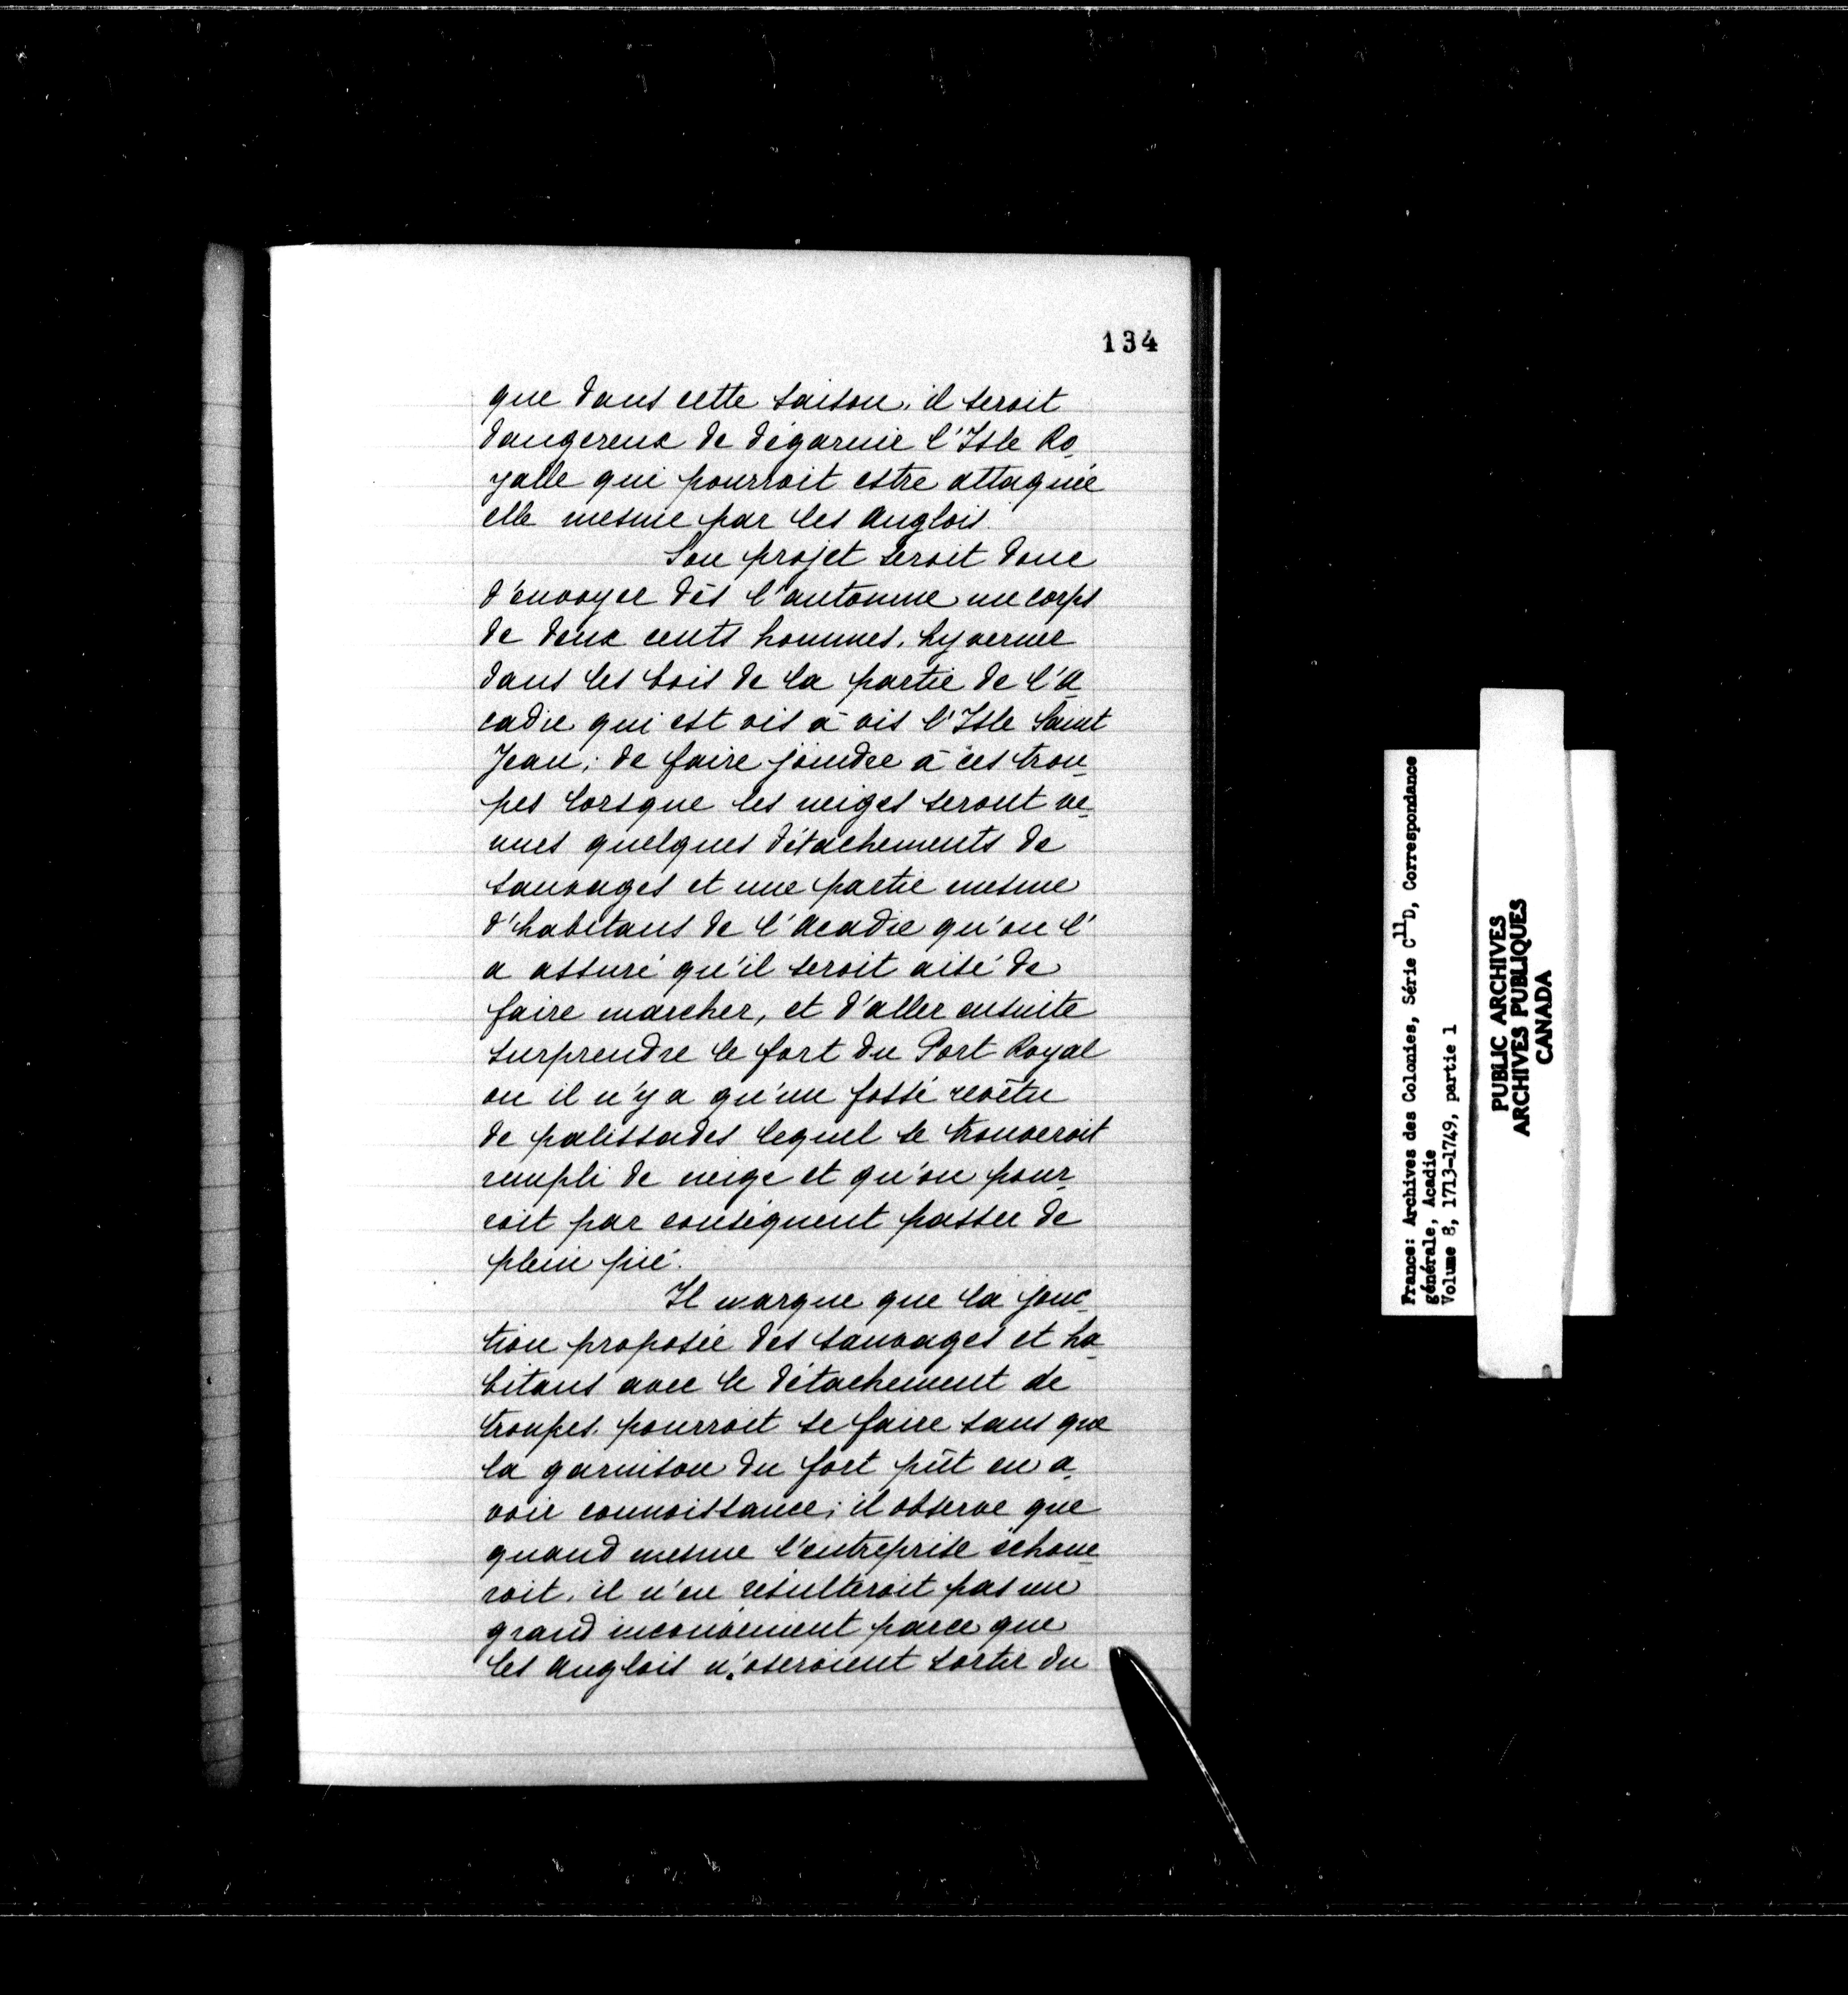 134
que dans cette saison, il seroit
dangereux de dégarnir l'Isle Ro-
yalle qui pourroit estre attaquée
elle mesme par les Anglois.
Son projet seroit donc
d'envoyer dès l'automne un corps
de deux cents hommes, hyverner
dans les bois de la partie de l'A-
cadie qui est vis à vis l'Isle Saint
Jean; de faire joindre à ces trou-
pes lorsque les neiges seront ve-
nues quelques détachements de
sauvages et une partie mesme
d'habitans de l'Acadie qu'on l'
a assuré qu'il seroit aisé de
faire marcher, et d'aller ensuite
surprendre le fort du Port Royal
ou il n'y a qu'un fossé revêtu
de palissades lequel se trouveroit
rempli de neige et qu'on pour-
roit par conséquent passer de
plein pié.
Il marque que la jonc-
tion proposée des sauvages et ha-
bitans avec le détachement de
troupes, pourroit se faire sans que
la garnison du fort pût en a-
voir connoissance; il observe que
quand mesme l'entreprise échoue-
roit, il n'en résulteroit pas un
grand inconvénient parce que
les Anglois n'oseroient sortir du
France: Archives des Colonies, Série C11D, Correspondance
générale, Acadie
Volume 8, 1713-1749, partie 1
PUBLIC ARCHIVES
ARCHIVES PUBLIQUES
CANADA